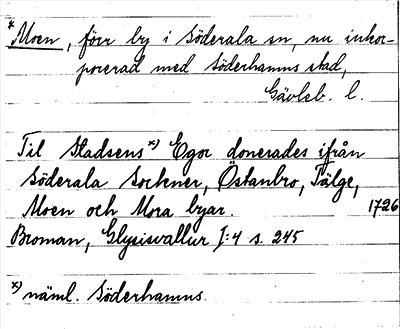 *Moen, förr by i Söderala sn, nu inkor-
porerad med Söderhamns stad,
Gävleb. l.
Til Stadsens *) Egor donerades ifrån
Söderala Sockner, Östanbro, Tälge,
Moen och Mora byar. 1726
Broman, Glysisvallur I:4 s. 245
*) näml. Söderhamns.